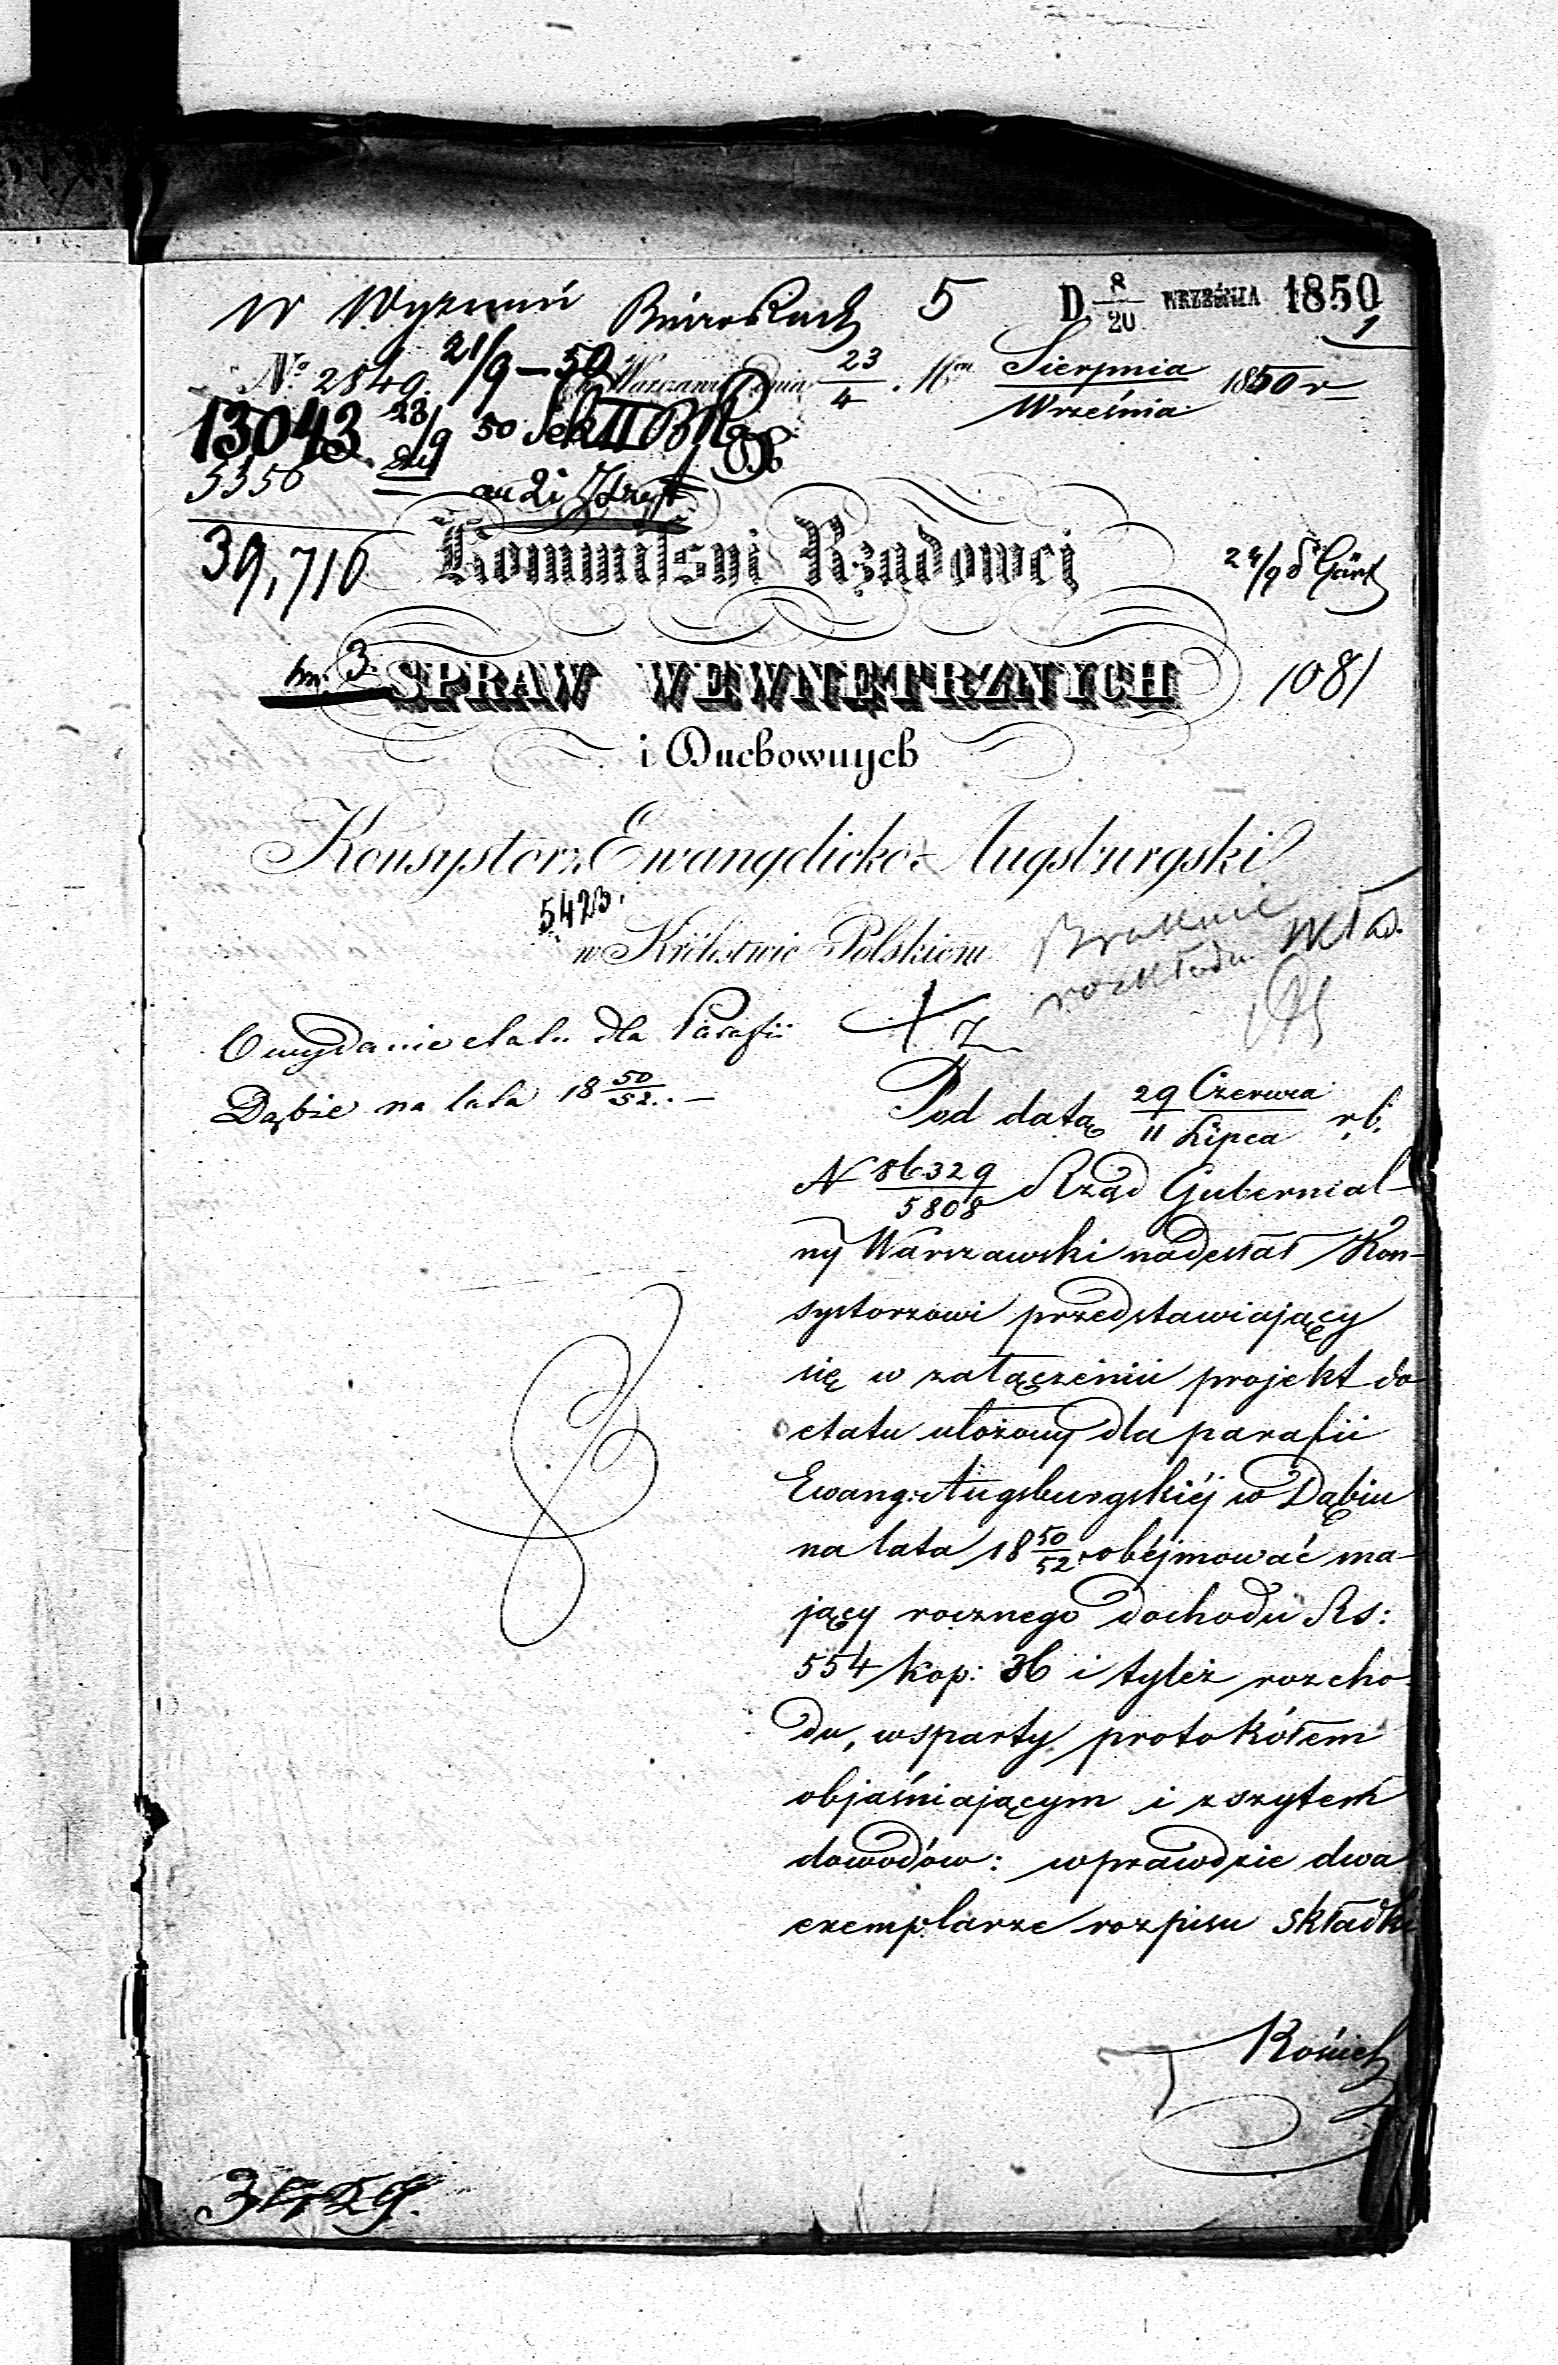 W Wyznań 5 D 8/20 WRZEŚNIA 1850
1
No 2849. 21/9 – 50 w Warszawie dnia 23/4 Sierpnia/Września 1850 r
13043 23/9 50 Sek II
5356
39,716 Kommissyi Rządowej 24/9
3. SPRAW WEWNĘTRZNYCH 1081
i Duchownych
Konsystorz Ewangelicko-Augsburgski
5423.
w Królestwie Polskiem
Braknie
rozkładu skład.
O wydanie etatu dla Parafii
Dąbie na lata 18 50/52. –
Pod datą 29 Czerwca/11 Lipca r. b.
N 86329/5808 Rząd Gubernial-
ny Warszawski nadesłał Kon-
systorzowi przedstawiający
się w załączeniu projekt do
etatu ułożony dla parafii
Ewang: Augsburgskiéj w Dąbiu
na lata 18 50/52 obéjmować ma-
jący rocznego dochodu Rs:
554 kop: 36 i tyleż rozcho-
du, wsparty protokółem
objaśniającym i zszytem
dowodów: wprawdzie dwa
exemplarze rozpisu składki